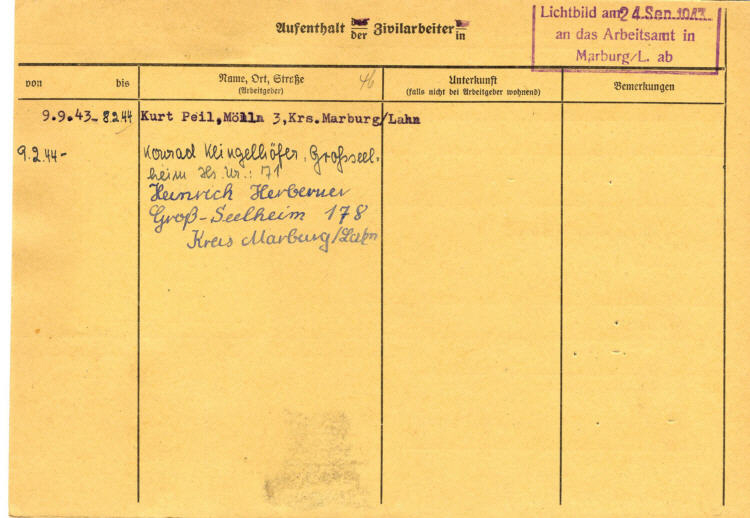 Aufenthalt der Zivilarbeiterin
Lichtbild am 24. Sep. 1943
an das Arbeitsamt in
Marburg/L. ab
von bis
Name, Ort, Straße
(Arbeitgeber)
46
Unterkunft
(falls nicht bei Arbeitgeber wohnend)
Bemerkungen
9.9.43- 8.2.44 Kurt Peil, Mölln 3, Krs. Marburg/Lahn
9.2.44- Konrad Klingelhöfer, Grosseel-
heim Hs. Nr.: 71
Heinrich Herberner
Groß-Seelheim 178
Kreis Marburg/Lahn